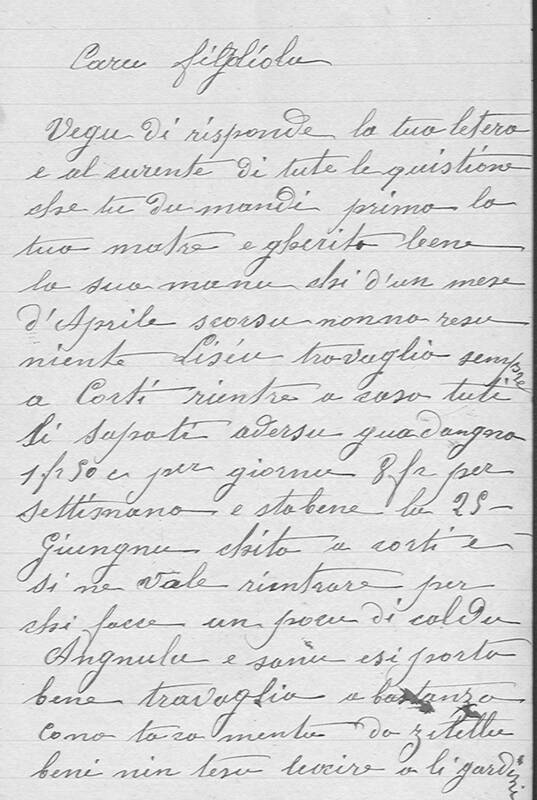 Caru figliolu
Vegu di risponde la tua letera
e al surente di tute le quistione
che tu du mandi prima la
tua matre e gherita bene
la sua manu chi d'un mese
d'Aprile scorsu nonna resu
niente Liséu travaglia sempre
a Corti rientre a casa tuti
li sapati adersu guadangna
1 fr 50 c per giornu 8 fr per
settimana e sta bene la 25
Giungnu chita a corti e
si ne vale rientrare per
chi facce un pocu di caldu
Angnulu e sanu e si porta
bene travaglia a bastanza
cona ta sa menta da zitellu
beni nin tesu a li gardini